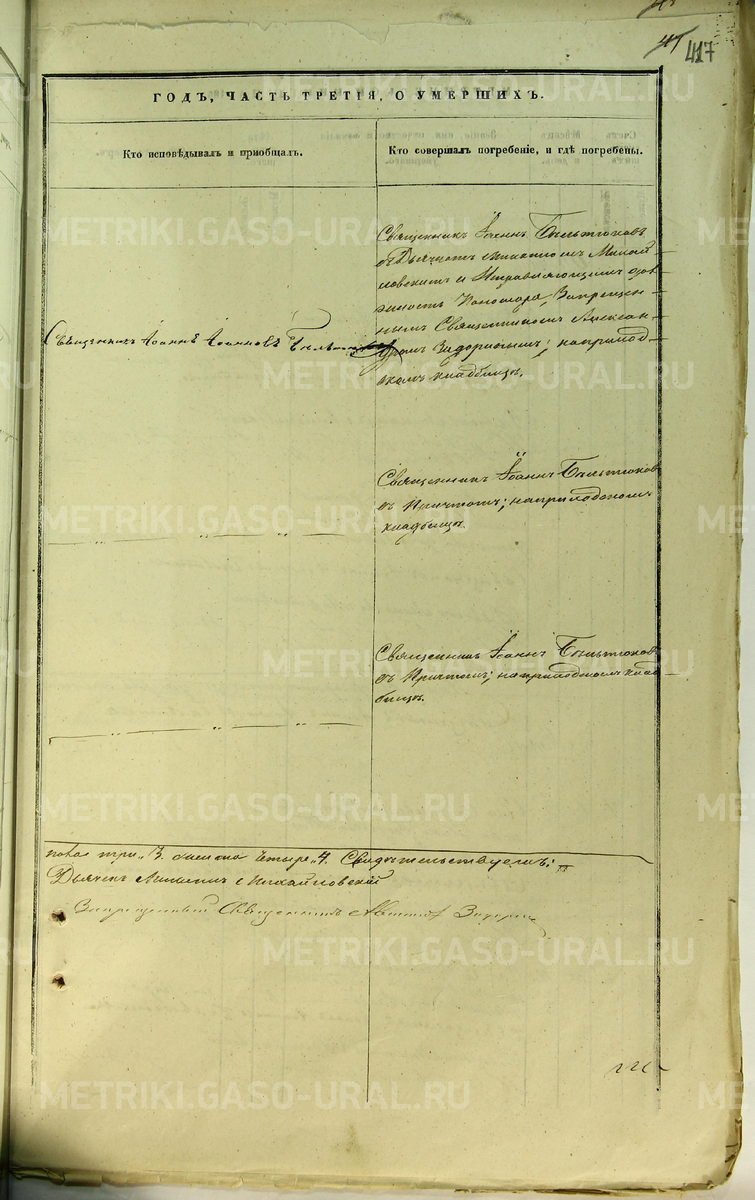 417
ГОДЪ, ЧАСТЬ ТРЕТІЯ, О УМЕРШИХЪ.
Кто исповѣдывалъ и пріобщалъ.
Кто совершалъ погребеніе, и гдѣ погребены.
Священникъ Іоаннъ Іоанновъ
Священникъ Іоаннъ Бѣльтюковъ
съ Дьячкомъ Михай-
ловскимъ и Исправляющимъ дол-
жность Пономаря, Запрещен-
нымъ Священникомъ Алексан-
дромъ Задоринымъ; на приход-
скомъ кладбищѣ.
Священникъ Іоаннъ Бѣльтюковъ
съ Причтомъ; на приходскомъ
кладбищѣ.
Священникъ Іоаннъ Бѣльтюковъ
съ Причтомъ; на приходскомъ клад-
бищѣ.
пола три „3. женска четыре „4. Свидѣтельствуемъ:
Дьячекъ Михайловскій
Запрещенный Священникъ
METRIKI.GASO-URAL.RU